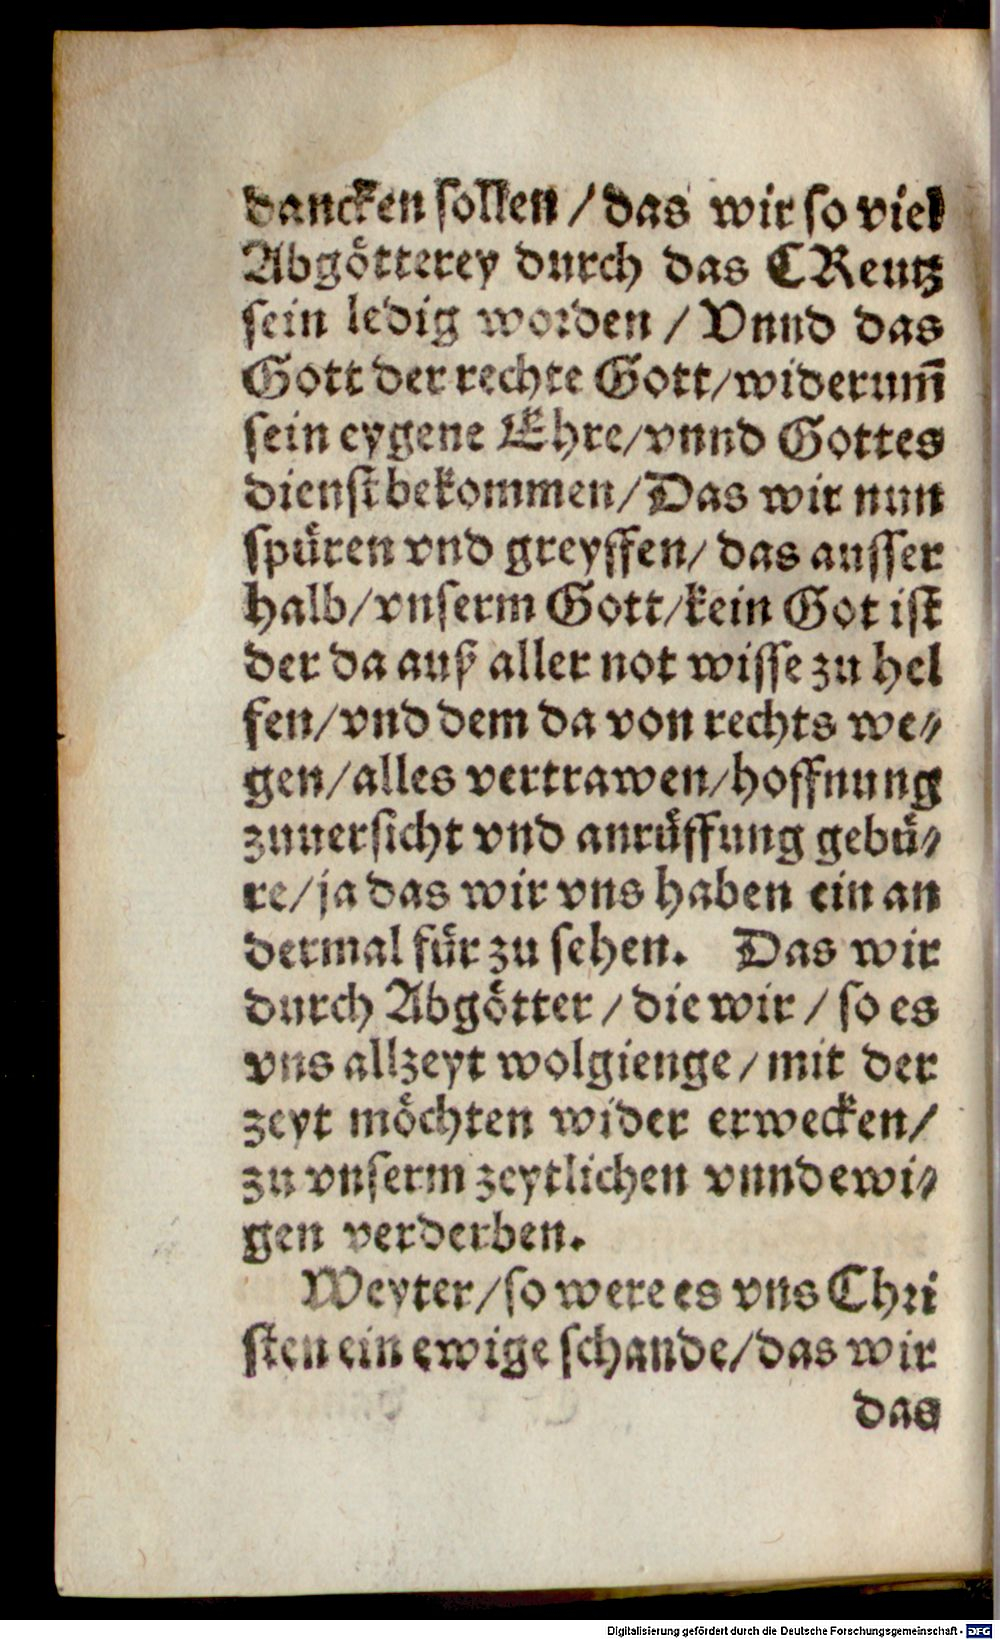 dancken sollen / das wir so viel
Abgötterey durch das CReutz
sein ledig worden / Vnnd das
Gott der rechte Gott/widerum̃
sein eygene Ehre/vnnd Gottes
dienst bekommen/Das wir nun
spüren vnd greyffen/ das ausser
halb/vnserm Gott/kein Got ist
der da auß aller not wisse zu hel
fen/vnd dem da von rechts we⸗
gen/alles vertrawen/hoffnung
zuuersicht vnd anrüffung gebü⸗
re/ja das wir vns haben ein an
dermal für zu sehen. Das wir
durch Abgötter / die wir / so es
vns allzeyt wolgienge/mit der
zeyt möchten wider erwecken/
zu vnserm zeytlichen vnnd ewi⸗
gen verderben.
Weyter/so were es vns Chri
sten ein ewige schande/das wir
das
Digitalisierung gefördert durch die Deutsche Forschungsgemeinschaft - DFG